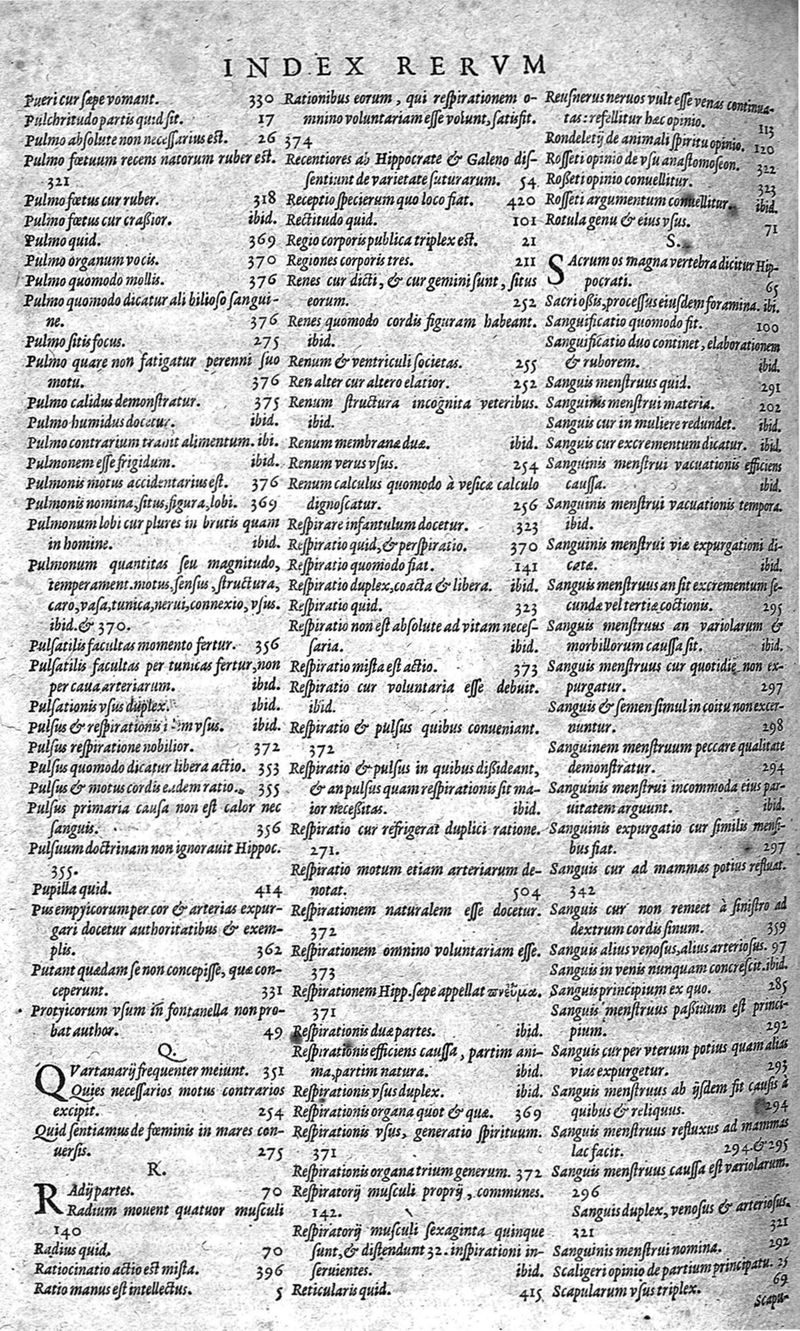 INDEX RERVM
Pueri cur sæpe vomant. 330
Pulchritudo partis quid sit. 17
Pulmo absolute non necessarius est. 26
Pulmo fœtuum recens natorum ruber est.
321
Pulmo fœtus cur ruber. 318
Pulmo fœtus cur craßior. ibid.
Pulmo quid. 369
Pulmo organum vocis. 370
Pulmo quomodo mollis. 376
Pulmo quomodo dicatur ali bilioso sangui-
ne. 376
Pulmo sitis focus. 275
Pulmo quare non fatigatur perenni suo
motu. 376
Pulmo calidus demonstratur. 375
Pulmo humidus docetur. ibid.
Pulmo contrarium trahit alimentum. ibi.
Pulmonem esse frigidum. ibid.
Pulmonis motus accidentarius est. 376
Pulmonis nomina, situs, figura, lobi. 369
Pulmonum lobi cur plures in brutis quam
in homine. ibid.
Pulmonum quantitas seu magnitudo,
temperament. motus, sensus, structura,
caro, vasa, tunica, nerui, connexio, vsus.
ibid. & 370.
Pulsatilis facultas momento fertur. 356
Pulsatilis facultas per tunicas fertur, non
per caua arteriarum. ibid.
Pulsationis vsus duplex. ibid.
Pulsus & respirationis vsus. ibid.
Pulsus respiratione nobilior. 372
Pulsus quomodo dicatur libera actio. 353
Pulsus & motus cordis eadem ratio. 355
Pulsus primaria causa non est calor nec
sanguis. 356
Pulsuum doctrinam non ignorauit Hippoc.
355.
Pupilla quid. 414
Pus empyicorum per cor & arterias expur-
gari docetur authoritatibus & exem-
plis. 362
Putant quædam se non concepisse, quæ con-
ceperunt. 331
Protyicorum vsum in fontanella non pro-
bat author. 49
Q.
QVartanarij frequenter meiunt. 351
Quies necessarios motus contrarios
excipit. 254
Quid sentiamus de fœminis in mares con-
uersis. 275
R.
RAdij partes. 70
Radium mouent quatuor musculi
140
Radius quid. 70
Ratiocinatio actio est mista. 396
Ratio manus est intellectus. 5
Rationibus eorum, qui respirationem o-
mnino voluntariam esse volunt, satisfit.
374
Recentiores ab Hippocrate & Galeno dis-
sentiunt de varietate suturarum. 54
Receptio specierum quo loco fiat. 420
Rectitudo quid. 101
Regio corporis publica triplex est. 21
Regiones corporis tres. 211
Renes cur dicti, & cur gemini sunt, situs
eorum. 252
Renes quomodo cordis figuram habeant.
ibid.
Renum & ventriculi societas. 255
Ren alter cur altero elatior. 252
Renum structura incognita veteribus.
ibid.
Renum membranæ duæ. ibid.
Renum verus vsus. 254
Renum calculus quomodo à vesicæ calculo
dignoscatur. 256
Respirare infantulum docetur. 323
Respiratio quid, & perspiratio. 370
Respiratio quomodo fiat. 141
Respiratio duplex, coacta & libera. ibid.
Respiratio quid. 323
Respiratio non est absolute ad vitam neces-
saria. ibid.
Respiratio mista est actio. 373
Respiratio cur voluntaria esse debuit.
ibid.
Respiratio & pulsus quibus conueniant.
372
Respiratio & pulsus in quibus dißideant,
& an pulsus quam respirationis sit ma-
ior neceßitas. ibid.
Respiratio cur refrigerat duplici ratione.
271.
Respiratio motum etiam arteriarum de-
notat. 504
Respirationem naturalem esse docetur.
372
Respirationem omnino voluntariam esse.
373
Respirationem Hipp. sæpe appellat πνεῦμα.
371
Respirationis duæ partes. ibid.
Respirationis efficiens caussa, partim ani-
ma, partim natura. ibid.
Respirationis vsus duplex. ibid.
Respirationis organa quot & quæ. 369
Respirationis vsus, generatio spirituum.
371
Respirationis organa trium generum. 372
Respiratorij musculi proprij, communes.
142.
Respiratorij musculi sexaginta quinque
sunt, & distendunt 32. inspirationi in-
seruientes. ibid.
Reticularis quid. 415
Reusnerus neruos vult esse venas continua-
tas: refellitur hæc opinio. 113
Rondeletij de animali spiritu opinio. 120
Rosseti opinio de vsu anastomoseon. 322
Roßeti opinio conuellitur. 323
Rosseti argumentum conuellitur. ibid.
Rotula genu & eius vsus. 71
S.
SAcrum os magna vertebra dicitur Hip-
pocrati. 65
Sacri oßis, processus eiusdem foramina. ibi.
Sanguificatio quomodo fit. 100
Sanguificatio duo continet, elaborationem
& ruborem. ibid.
Sanguis menstruus quid. 291
Sanguinis menstrui materia. 202
Sanguis cur in muliere redundet. ibid.
Sanguis cur excrementum dicatur. ibid.
Sanguinis menstrui vacuationis efficiens
caussa. ibid.
Sanguinis menstrui vacuationis tempora.
ibid.
Sanguinis menstrui viæ expurgationi di-
catæ. ibid.
Sanguis menstruus an sit excrementum se-
cundæ vel tertiæ coctionis. 295
Sanguis menstruus an variolarum &
morbillorum caussa sit. ibid.
Sanguis menstruus cur quotidie non ex-
purgatur. 297
Sanguis & semen simul in coitu non excer-
nuntur. 298
Sanguinem menstruum peccare qualitate
demonstratur. 294
Sanguinis menstrui incommoda eius par-
uitatem arguunt. ibid.
Sanguinis expurgatio cur similis mensi-
bus fiat. 297
Sanguis cur ad mammas potius refluat.
342
Sanguis cur non remeet à sinistro ad
dextrum cordis sinum. 359
Sanguis alius venosus, alius arteriosus. 97
Sanguis in venis nunquam concrescit. ibid.
Sanguis principium ex quo. 285
Sanguis menstruus paßiuum est princi-
pium. 292
Sanguis cur per vterum potius quam alias
vias expurgetur. 293
Sanguis menstruus ab ijsdem fit causis à
quibus & reliquus. 294
Sanguis menstruus refluxus ad mammas
lac facit. 294. & 295
Sanguis menstruus caussa est variolarum.
296
Sanguis duplex, venosus & arteriosus.
321 321
Sanguinis menstrui nomina. 292
Scaligeri opinio de partium principatu. 25
Scapularum vsus triplex. 69
Scapu-